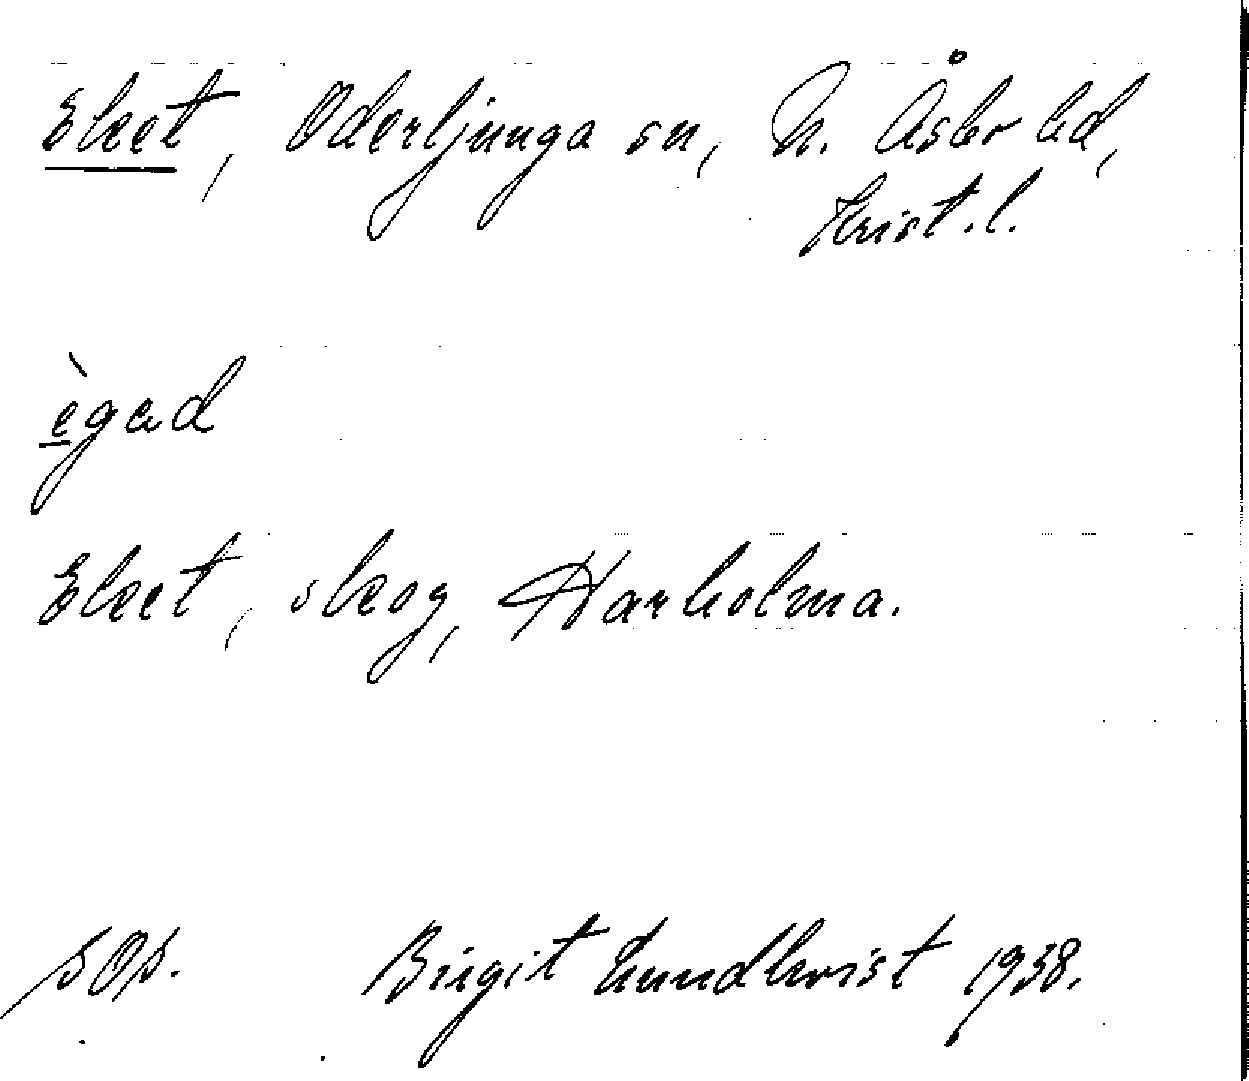 Eket, Oderljunga sn, N. Åsbo hd,
Krist. l.
ègad
Eket, skog, Harholma.
sOp. Birgit Lundkvist 1938.